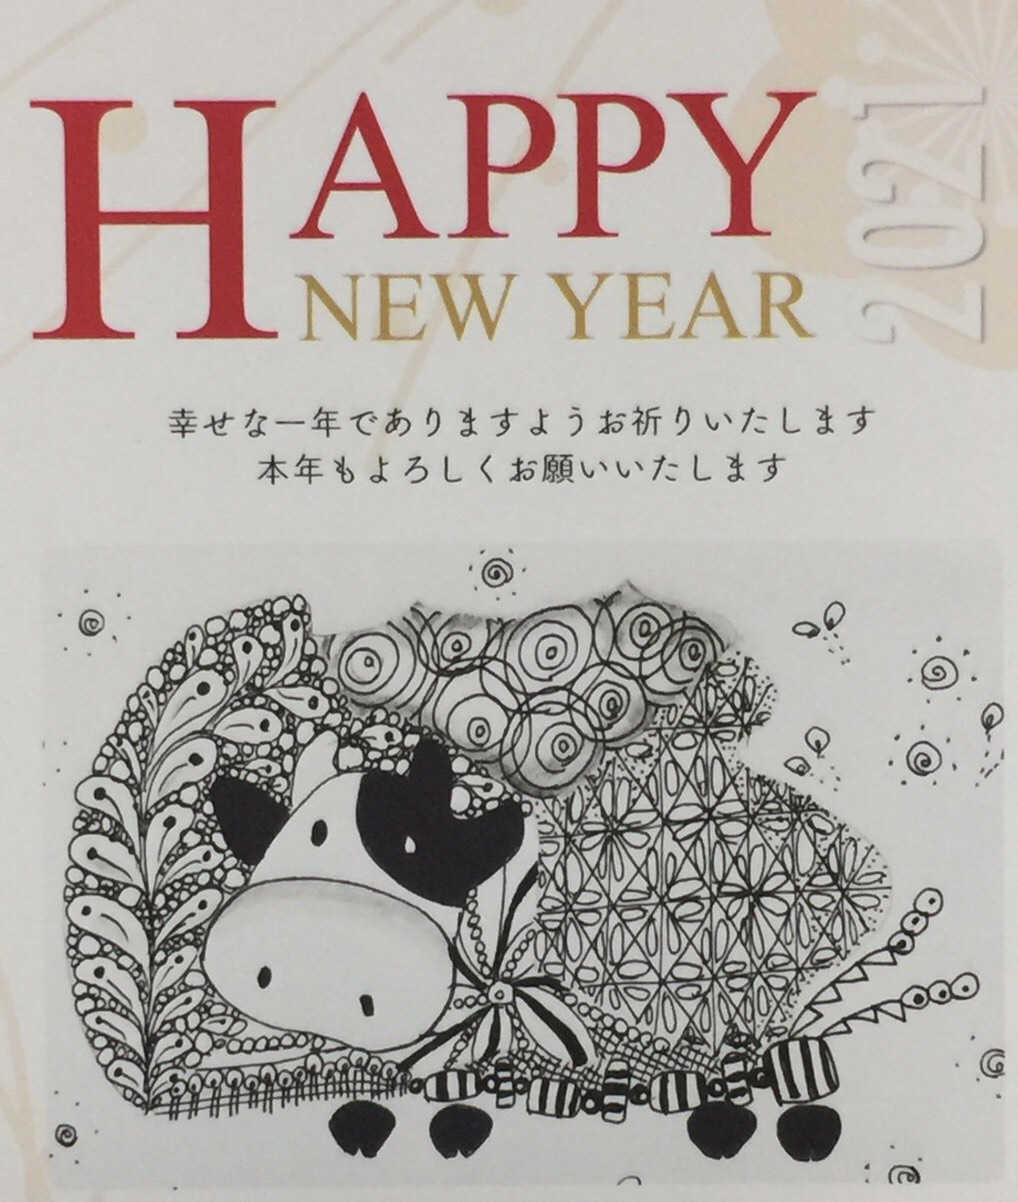 HAPPY
NEW YEAR
2021
幸せな一年でありますようお祈りいたします
本年もよろしくお願いいたします